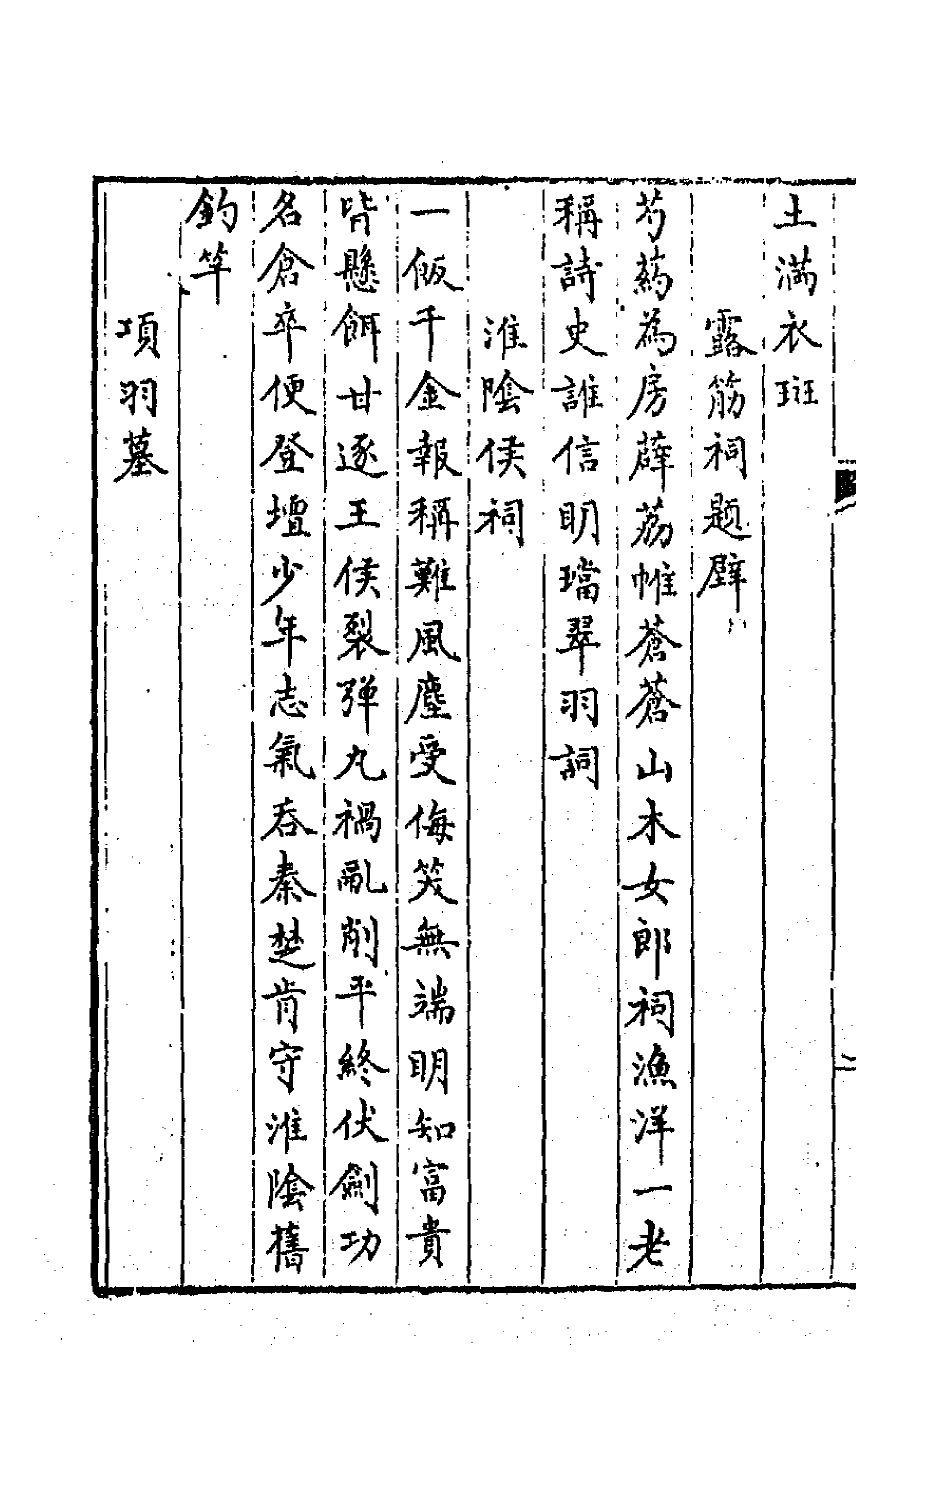 土滿衣斑
露筋祠題壁
芍藥為房薜荔帷蒼蒼山木女郎祠漁洋一老
稱詩史誰信明璫翠羽詞
淮陰侯祠
一飯千金報稱難風塵受侮笑無端明知富貴
皆懸餌甘逐王侯裂彈丸禍亂削平終伏劍功
名倉卒便登壇少年志氣吞秦楚肯守淮陰舊
釣竿
項羽墓
二